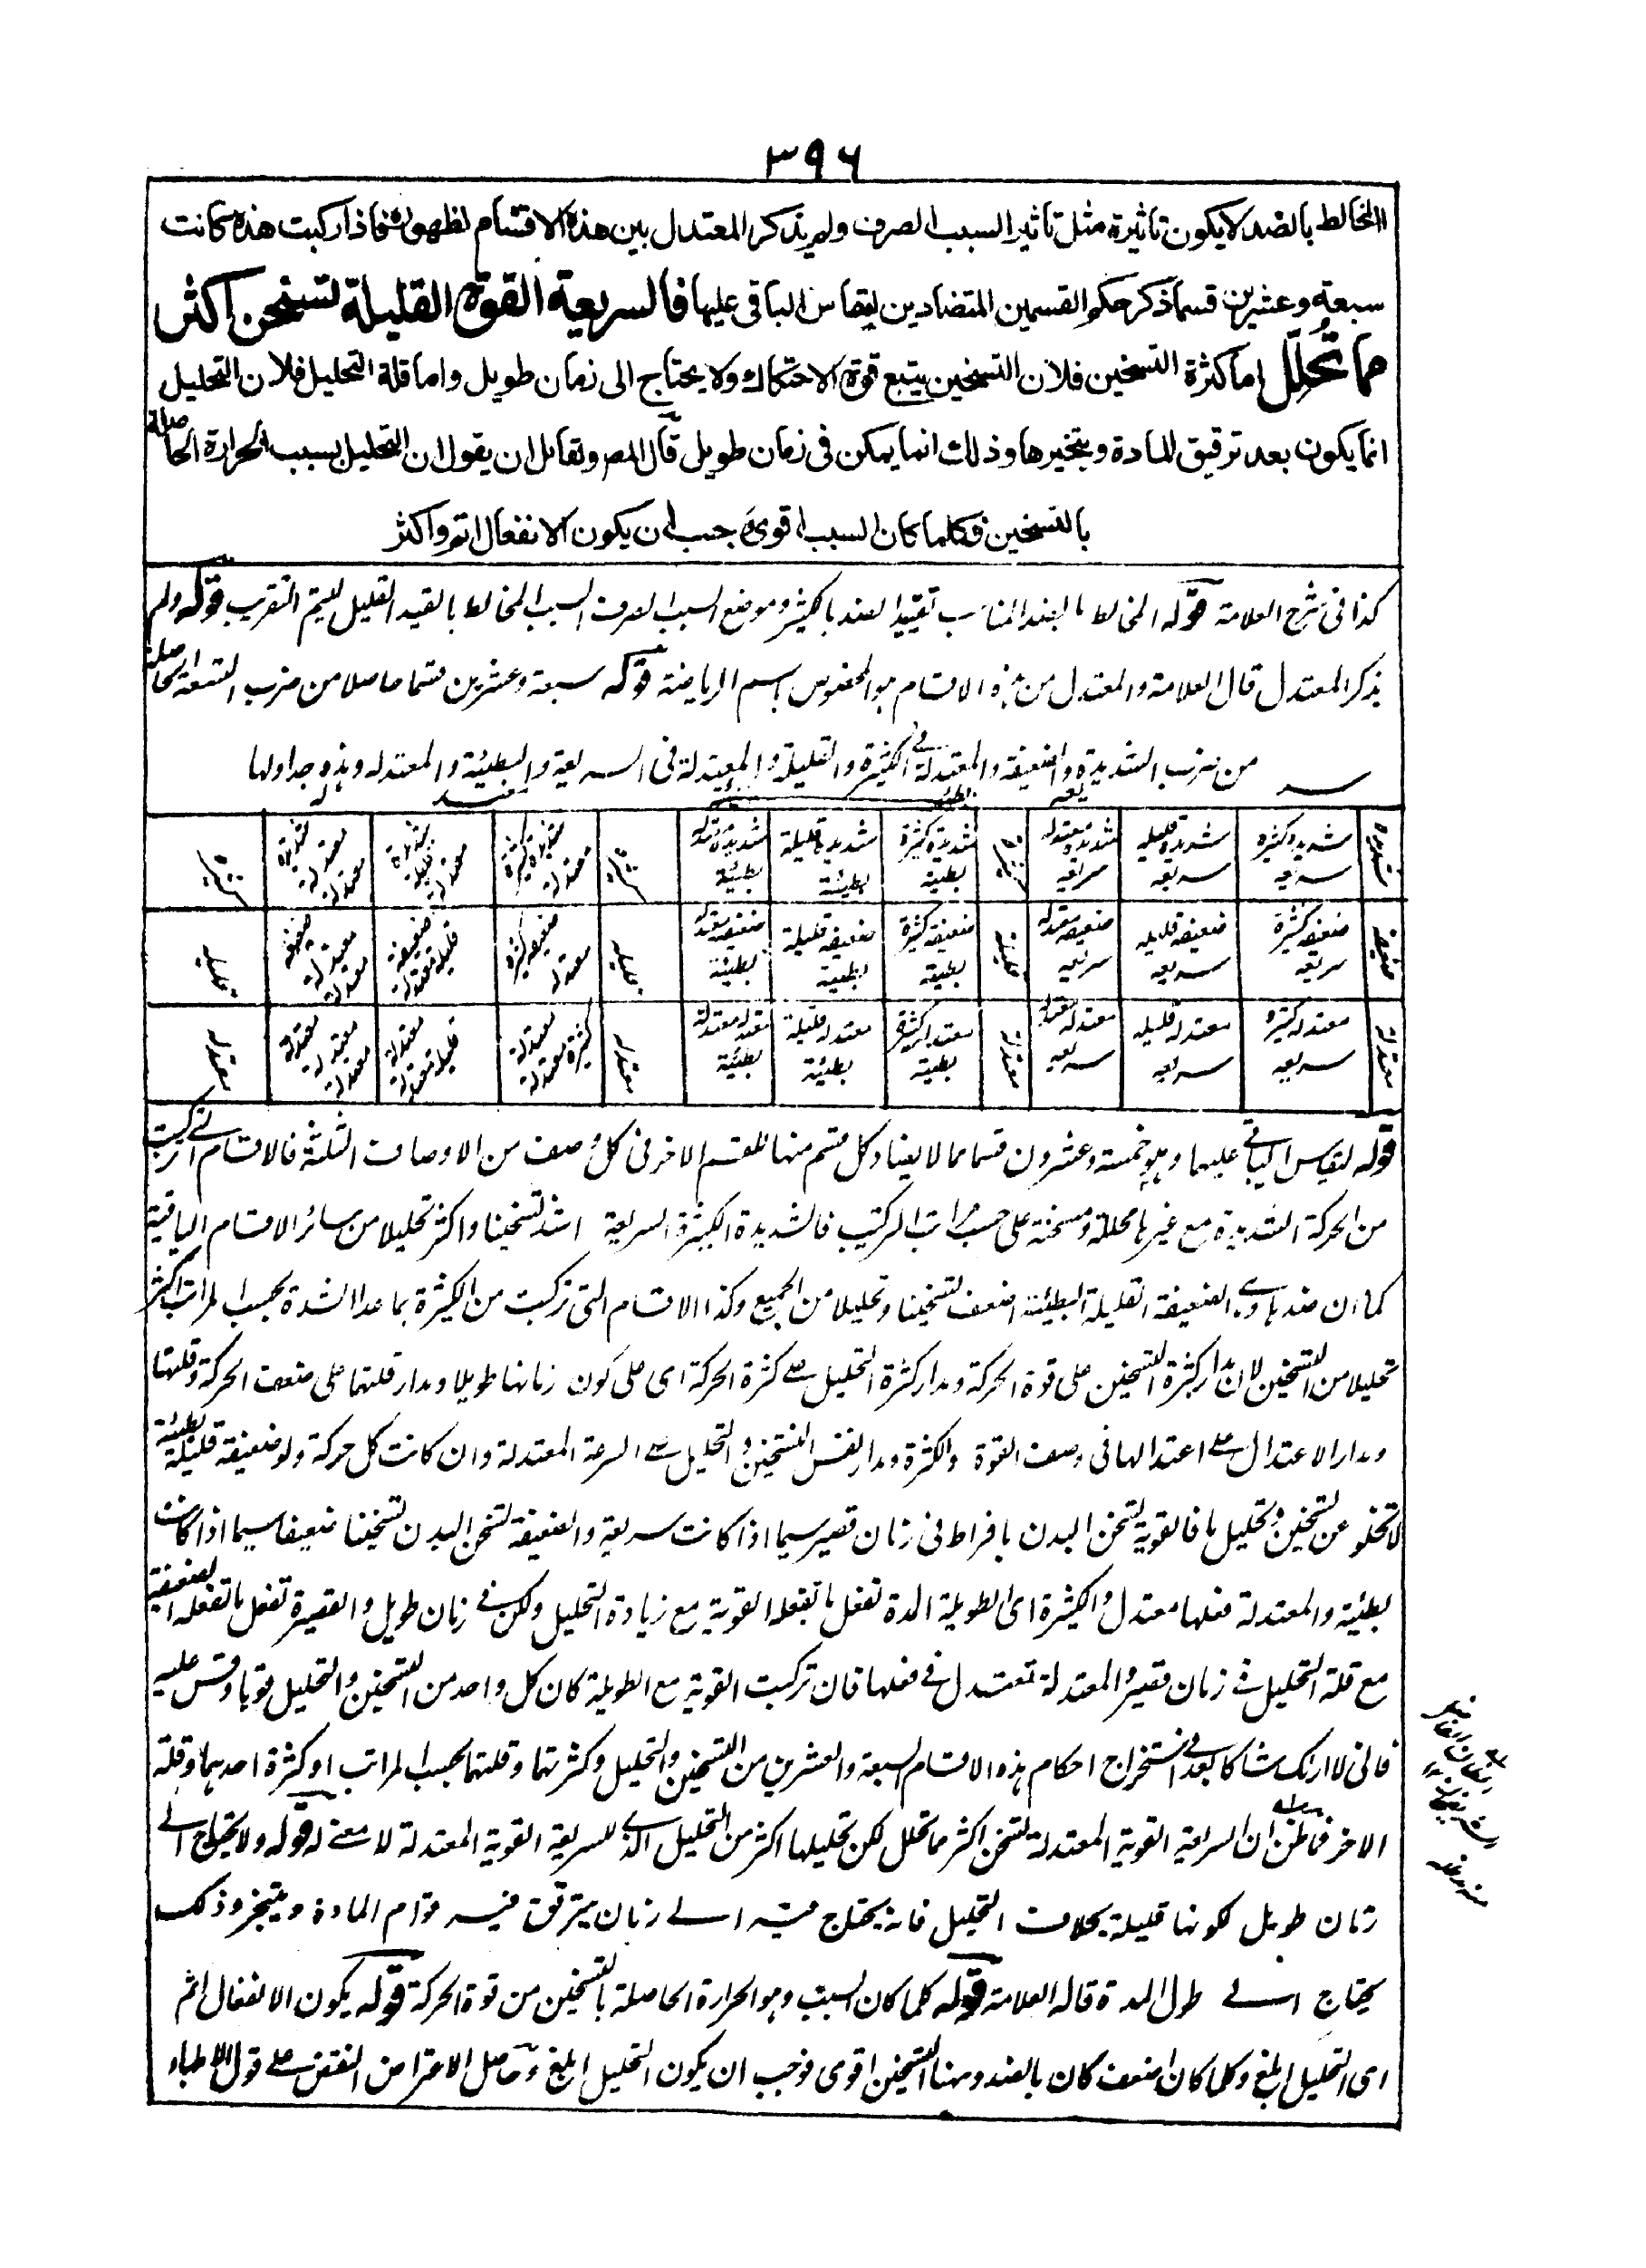 ٣٩٦
المخالط بالضد لا يكون تاثيره مثل تاثير السبب الصرف ولم يذكر المعتدل بين هذه الاقسام لظهوره فاذا ركبت هذه كانت
سبعة وعشرين قسما ذكر حكم القسمين المتضادين ليقاس الباقى عليها فالسريعة القوة القليلة تسخن اكثر
مما تُحلِّل اما كثرة التسخين فلان التسخين يتبع قوة الاحتكاك ولا يحتاج الى زمان طويل واما قلة التحليل فلان التحليل
انما يكون بعد ترقيق المادة وتبخيرها وذلك انما يمكن فى زمان طويل قال المصر ولقائل ان يقول ان التحليل بسبب الحرارة الحاصلة
بالتسخين فكلما كان السبب اقوى وجب ان يكون الانفعال اتم واكثر
كذا فى شرح العلامة قوله المخالط بالضد المناسب تقييد الضد بالكثير وموضع السبب الصرف السبب المخالط بالقيد القليل ليتم التقريب قوله ولم
يذكر المعتدل قال العلامة والمعتدل من هذه الاقسام هو المخصوص باسم الرياضة قوله سبعة وعشرين قسما حاصلا من ضرب التسعة الحاصلة
من ضرب الشديدة والضعيفة والمعتدلة فى الكثيرة والقليلة والمعتدلة فى السريعة والبطيئة والمعتدلة وهذه جداولها
شديدة | شديدة كثيرة سريعة | شديدة قليلة سريعة | شديدة معتدلة سريعة | | شديدة كثيرة بطيئة | شديدة قليلة بطيئة | شديدة معتدلة بطيئة | | شديدة كثيرة معتدلة | شديدة قليلة معتدلة | شديدة معتدلة معتدلة
ضعيفة | ضعيفة كثيرة سريعة | ضعيفة قليلة سريعة | ضعيفة معتدلة سريعة | | ضعيفة كثيرة بطيئة | ضعيفة قليلة بطيئة | ضعيفة معتدلة بطيئة | | ضعيفة كثيرة معتدلة | ضعيفة قليلة معتدلة | ضعيفة معتدلة معتدلة
معتدلة | معتدلة كثيرة سريعة | معتدلة قليلة سريعة | معتدلة معتدلة سريعة | معتدلة | معتدلة كثيرة بطيئة | معتدلة قليلة بطيئة | معتدلة معتدلة بطيئة | معتدلة | معتدلة كثيرة معتدلة | معتدلة قليلة معتدلة | معتدلة معتدلة معتدلة | معتدلة
قوله ليقاس الباقى عليها وهو خمسة وعشرون قسما مما لا يضاد كل قسم منها للقسم الاخر فى كل وصف من الاوصاف الثلثة فالاقسام التى تركبت
من الحركة الشديدة مع غيرها محللة ومسخنة على حسب مراتب التركيب فالشديدة الكثيرة السريعة اشد تسخينا واكثر تحليلا من سائر الاقسام الباقية
كما ان ضدها وهى الضعيفة القليلة البطيئة اضعف تسخينا وتحليلا من الجميع وكذا الاقسام التى تركبت من الكثيرة بما عدا الشدة بحسب المراتب اكثر
تحليلا من التسخين لان مدار كثرة التسخين على قوة الحركة ومدار كثرة التحليل على كثرة الحركة اى على كون زمانها طويلا ومدار قلتهما على ضعف الحركة وقلتها
ومدار الاعتدال على اعتدالها فى وصف القوة والكثرة ومدار نفس التسخين والتحليل على السرعة المعتدلة وان كانت كل حركة ولو ضعيفة قليلة بطيئة
لا تخلو عن تسخين وتحليل ما فالقوية تسخن البدن بافراط فى زمان قصير سيما اذا كانت سريعة والضعيفة تسخن البدن تسخينا ضعيفا سيما اذا كانت
بطيئة والمعتدلة فعلها معتدل والكثيرة اى الطويلة المدة تفعل ما تفعله القوية مع زيادة التحليل ولكن فى زمان طويل والقصيرة تفعل ما تفعله الضعيفة
مع قلة التحليل فى زمان قصير والمعتدلة تعتدل فى فعلها فان تركبت القوية مع الطويلة كان كل واحد من التسخين والتحليل قويا وقس عليه
فانى لا اراك شاكا بعد فى استخراج احكام هذه الاقسام السبعة والعشرين من التسخين والتحليل وكثرتهما وقلتهما بحسب المراتب او كثرة احدهما وقلة
الاخر فما ظن ان السريعة القوية المعتدلة تسخن اكثر مما تحلل لكن تحليلها اكثر من التحليل الذى للسريعة القوية المعتدلة لا معنى له قوله ولا يحتاج الى
زمان طويل لكونها قليلة بخلاف التحليل فانه يحتاج فيه الى زمان يترقق فيه قوام المادة ويتبخر وذلك
يحتاج الى طول المدة قاله العلامة قوله كلما كان السبب وهو الحرارة الحاصلة بالتسخين من قوة الحركة قوله يكون الانفعال اتم
اى التحليل ابلغ وكلما كان اضعف كان بالضد وههنا التسخين اقوى فوجب ان يكون التحليل ابلغ وحاصل الاعتراض النقض على قول الاطباء